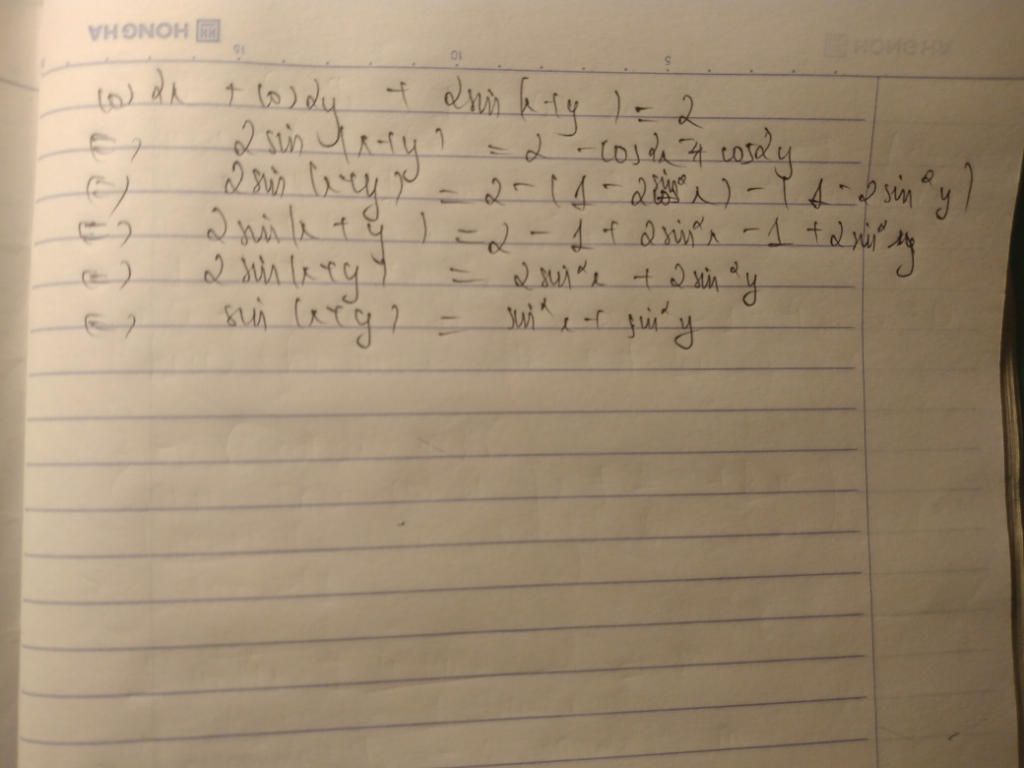 HONG HA HONG HA
15 10 5
cos 2x + cos 2y + 2sin(x+y) = 2
<=> 2sin(x+y) = 2 - cos2x - cos2y
<=> 2sin(x+y) = 2 - (1 - 2sin²x) - (1 - 2sin²y)
<=> 2sin(x+y) = 2 - 1 + 2sin²x - 1 + 2sin²y
<=> 2sin(x+y) = 2sin²x + 2sin²y
<=> sin(x+y) = sin²x + sin²y